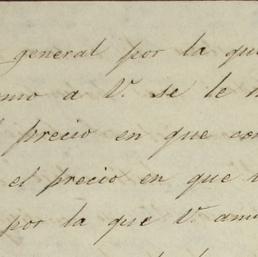 general por la que
a V. se le
precio en que
el precio en que
por la que V.